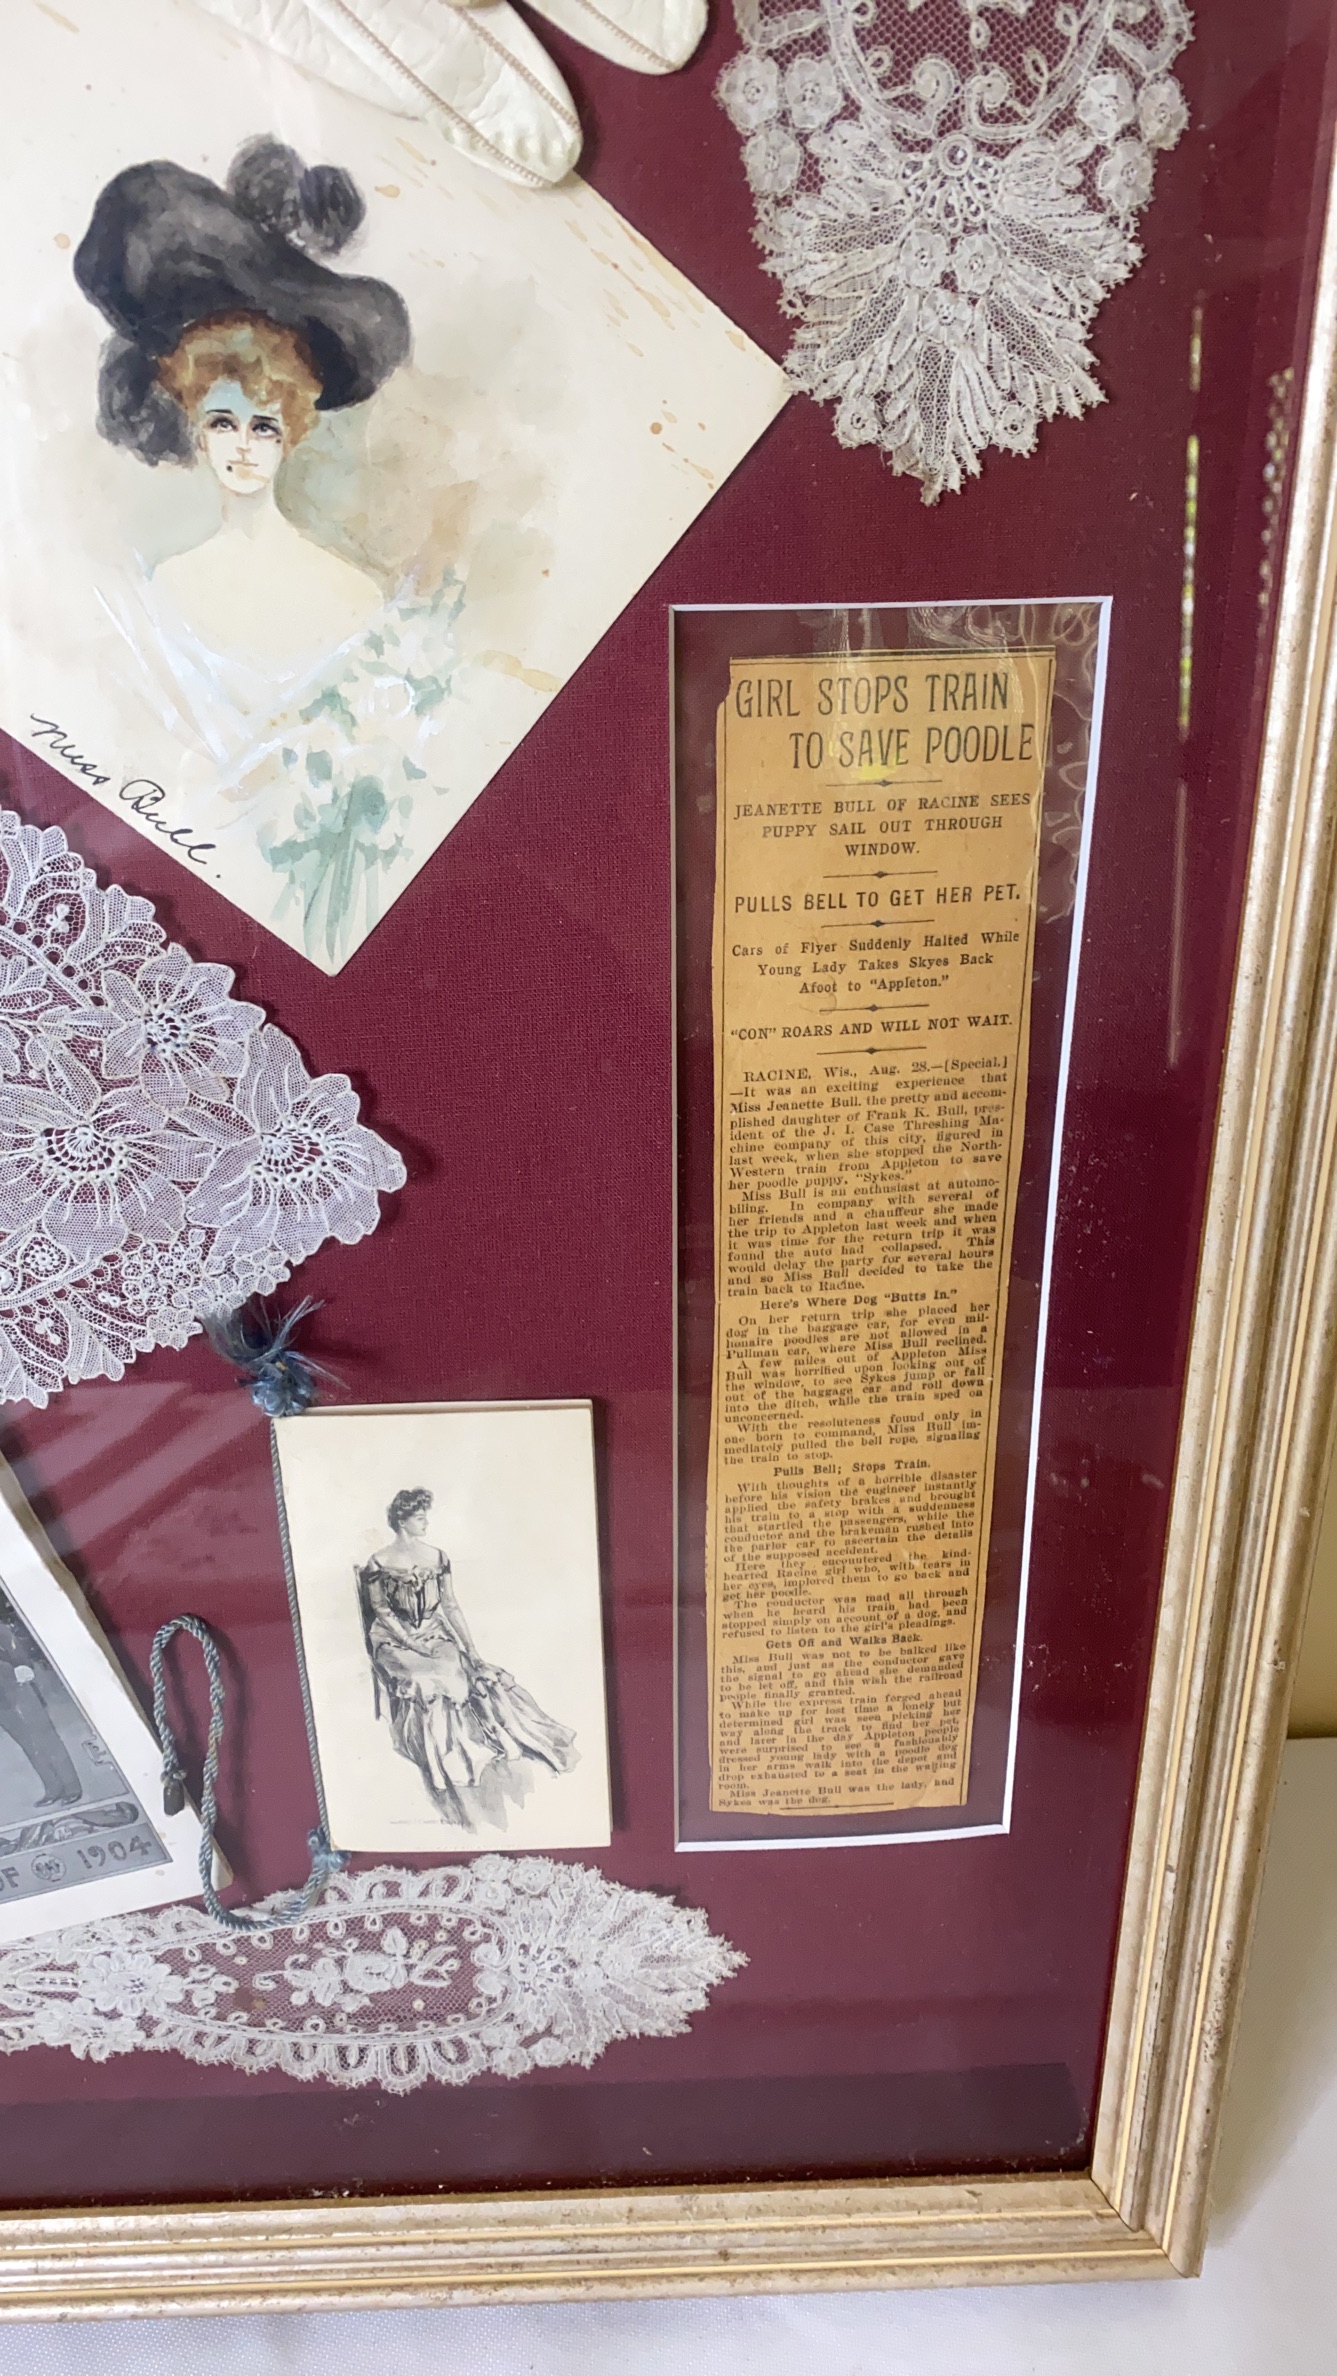 Miss Bull.
GIRL STOPS TRAIN
TO SAVE POODLE
JEANETTE BULL OF RACINE SEES
PUPPY SAIL OUT THROUGH
WINDOW.
PULLS BELL TO GET HER PET.
Cars of Flyer Suddenly Halted While
Young Lady Takes Skyes Back
Afoot to "Appleton."
"CON" ROARS AND WILL NOT WAIT.
RACINE, Wis., Aug. 28.—[Special.]
—It was an exciting experience that
Miss Jeanette Bull, the pretty and accom-
plished daughter of Frank K. Bull, pres-
ident of the J. I. Case Threshing Ma-
chine company of this city, figured in
last week, when she stopped the North-
Western train from Appleton to save
her poodle puppy, "Sykes."
Miss Bull is an enthusiast at automo-
biling. In company with several of
her friends and a chauffeur she made
the trip to Appleton last week and when
it was time for the return trip it was
found the auto had collapsed. This
would delay the party for several hours
and so Miss Bull decided to take the
train back to Racine.
Here's Where Dog "Butts In."
On her return trip she placed her
dog in the baggage car, for even mil-
lionaire poodles are not allowed in a
Pullman car, where Miss Bull reclined.
A few miles out of Appleton Miss
Bull was horrified upon looking out of
the window, to see Sykes jump or fall
out of the baggage car and roll down
into the ditch, while the train sped on
unconcerned.
With the resoluteness found only in
one born to command, Miss Bull im-
mediately pulled the bell rope, signaling
the train to stop.
Pulls Bell; Stops Train.
With thoughts of a horrible disaster
before his vision the engineer instantly
applied the safety brakes and brought
his train to a stop with a suddenness
that startled the passengers, while the
conductor and the brakeman rushed into
the parlor car to ascertain the details
of the supposed accident.
Here they encountered the kind-
hearted Racine girl who, with tears in
her eyes, implored them to go back and
get her poodle.
The conductor was mad all through
when he heard his train had been
stopped simply on account of a dog, and
refused to listen to the girl's pleadings.
Gets Off and Walks Back.
Miss Bull was not to be balked like
this, and just as the conductor gave
the signal to go ahead she demanded
to be let off, and this wish the railroad
people finally granted.
While the express train forged ahead
to make up for lost time a lonely but
determined girl was seen picking her
way along the track to find her pet,
and later in the day Appleton people
were surprised to see a fashionably
dressed young lady with a poodle dog
in her arms walk into the depot and
drop exhausted to a seat in the waiting
room.
Miss Jeanette Bull was the lady, and
Sykes was the dog.
OF 1904